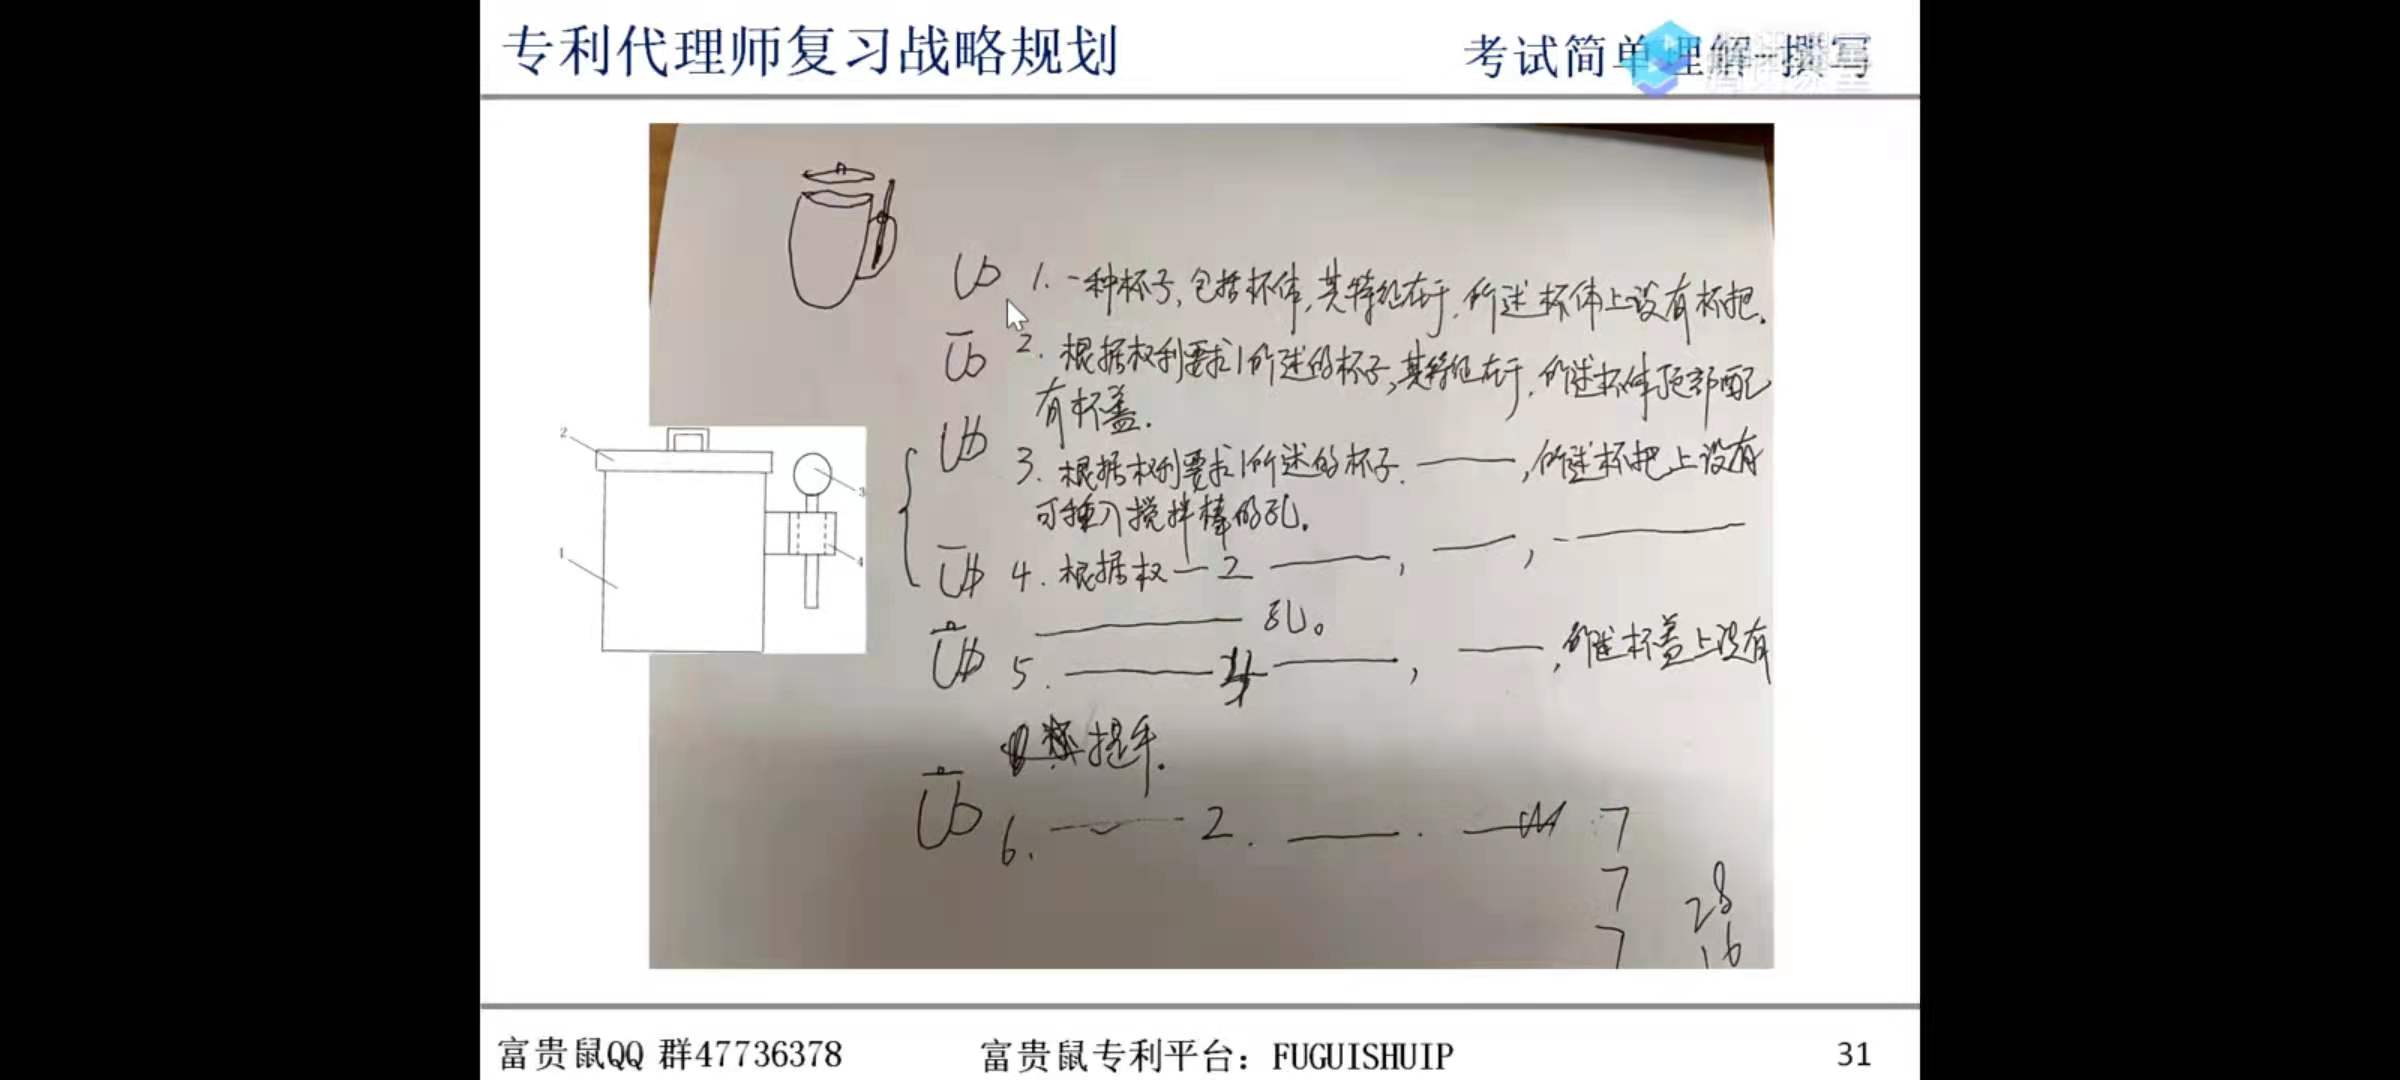 专利代理师复习战略规划
考试简单理解-撰写
1. 一种杯子,包括杯体,其特征在于,所述杯体上设有杯把.
2. 根据权利要求1所述的杯子,其特征在于,所述杯体顶部配
有杯盖.
3. 根据权利要求1所述的杯子. ——,所述杯把上设有
可插入搅拌棒的孔.
4. 根据权—2——, ——, ——
—— 孔。
5. —— 4 ——, ——,所述杯盖上设有
提手.
6. —— 2. ——. —— 7
7
28
7
16
2
3
1
4
富贵鼠QQ 群47736378
富贵鼠专利平台：FUGUISHUIP
31